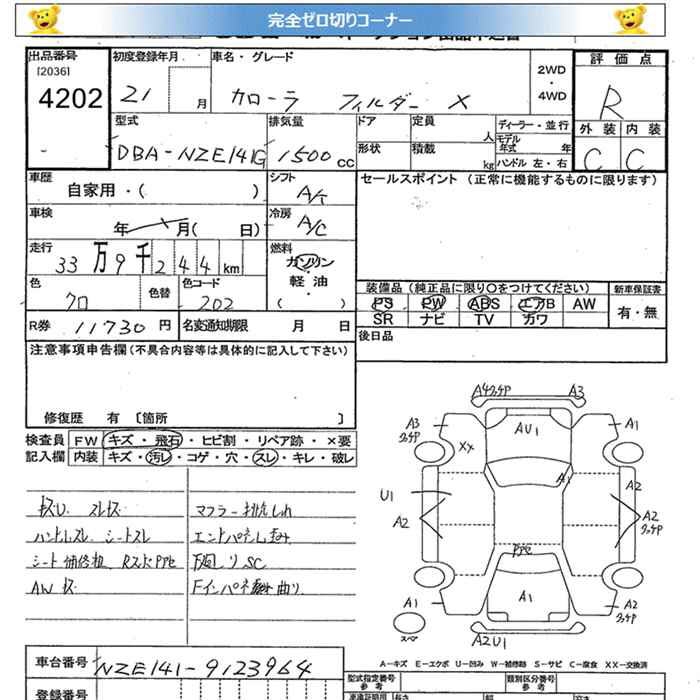 完全ゼロ切りコーナー
出品番号 初度登録年月 車名・グレード 評価点
[2036] 2WD
4202 21 月 カローラ フィルダー X ・4WD R
型式 排気量 ドア 定員 人 ディーラー・並行 外装 内装
モデル年式 年
DBA-NZE141G 1500 CC 形状 積載 kg ハンドル 左・右 C C
車歴 シフト セールスポイント (正常に機能するものに限ります)
自家用・( )
車検 冷房
年 月( 日) A/C
走行 燃料
33万9千244km ガソリン
色 色替 色コード ・軽油・ 装備品(純正品に限り○をつけてください) 新車保証書
クロ 202 ( ) PS PW ABS エアB AW 有・無
SR ナビ TV カワ
R券 11730円 名変通知期限 月 日 後日品
注意事項申告欄(不具合内容等は具体的に記入して下さい)
修復歴 有 [箇所 ]
検査員 FW キズ・飛石・ヒビ割・リペア跡・×要
記入欄 内装 キズ・汚レ・コゲ・穴・スレ・キレ・破レ
スレキズ マフラー排気もれ
ハンドルスレ シートスレ エンドパネル歪み
下廻りSC
AWキズ
A4 A3
A3 A1
AU1
XX A1
U1 A2
A2 A2
A1 A1 A2
スペア A2U1
A-キズ E-エクボ U-凹み W-補修跡 S-サビ C-腐食 XX-交換済
車台番号 NZE141-9123964 型式指定番号 参考 類別区分番号 参考
登録番号